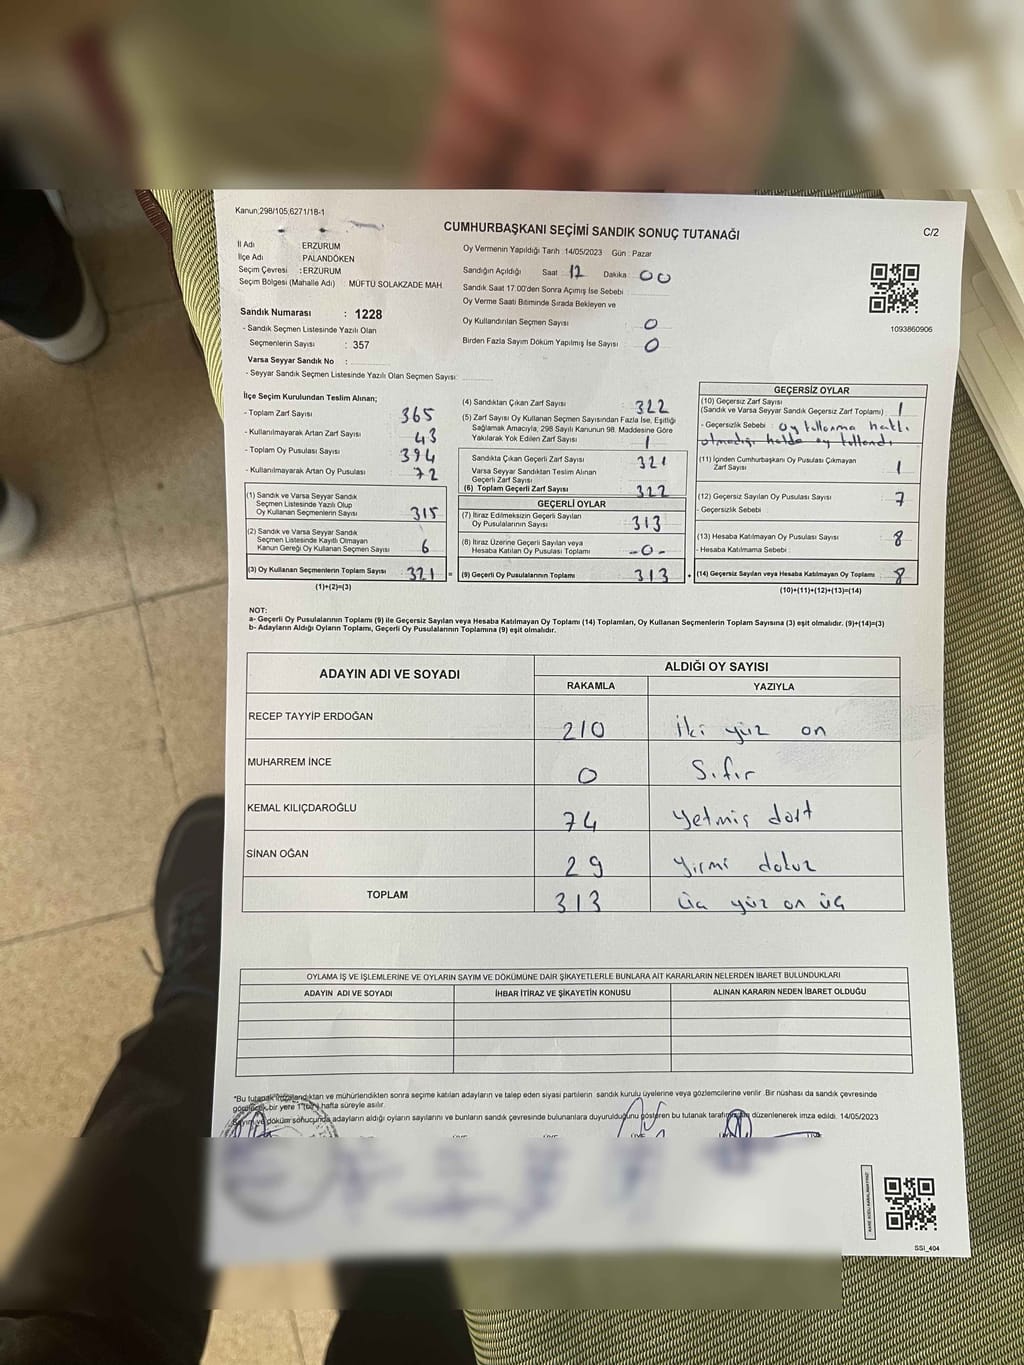 Kanun;298/105,6271/18-1
CUMHURBAŞKANI SEÇİMİ SANDIK SONUÇ TUTANAĞI
C/2
İl Adı : ERZURUM
İlçe Adı : PALANDÖKEN
Seçim Çevresi : ERZURUM
Seçim Bölgesi (Mahalle Adı) : MÜFTÜ SOLAKZADE MAH.
Sandık Numarası : 1228
- Sandık Seçmen Listesinde Yazılı Olan
Seçmenlerin Sayısı : 357
Varsa Seyyar Sandık No :
- Seyyar Sandık Seçmen Listesinde Yazılı Olan Seçmen Sayısı:
Oy Vermenin Yapıldığı Tarih :14/05/2023 Gün : Pazar
Sandığın Açıldığı Saat 12 Dakika : 00
Sandık Saat 17:00'den Sonra Açımış İse Sebebi :
Oy Verme Saati Bitiminde Sırada Bekleyen ve
Oy Kullandırılan Seçmen Sayısı : 0
Birden Fazla Sayım Döküm Yapılmış İse Sayısı : 0
1093860906
İlçe Seçim Kurulundan Teslim Alınan;
- Toplam Zarf Sayısı 365
- Kullanılmayarak Artan Zarf Sayısı 43
- Toplam Oy Pusulası Sayısı 394
- Kullanılmayarak Artan Oy Pusulası 72
(1) Sandık ve Varsa Seyyar Sandık
Seçmen Listesinde Yazılı Olup
Oy Kullanan Seçmenlerin Sayısı 315
(2) Sandık ve Varsa Seyyar Sandık
Seçmen Listesinde Kayıtlı Olmayan
Kanun Gereği Oy Kullanan Seçmen Sayısı 6
(3) Oy Kullanan Seçmenlerin Toplam Sayısı 321 =
(1)+(2)=(3)
(4) Sandıktan Çıkan Zarf Sayısı : 322
(5) Zarf Sayısı Oy Kullanan Seçmen Sayısından Fazla İse, Eşitliği
Sağlamak Amacıyla, 298 Sayılı Kanunun 98. Maddesine Göre
Yakılarak Yok Edilen Zarf Sayısı : 1
Sandıkta Çıkan Geçerli Zarf Sayısı : 321
Varsa Seyyar Sandıktan Teslim Alınan
Geçerli Zarf Sayısı
(6) Toplam Geçerli Zarf Sayısı : 322
GEÇERLİ OYLAR
(7) İtiraz Edilmeksizin Geçerli Sayılan
Oy Pusulalarının Sayısı : 313
(8) İtiraz Üzerine Geçerli Sayılan veya
Hesaba Katılan Oy Pusulası Toplamı : -0-
(9) Geçerli Oy Pusulalarının Toplamı : 313 +
GEÇERSİZ OYLAR
(10) Geçersiz Zarf Sayısı;
(Sandık ve Varsa Seyyar Sandık Geçersiz Zarf Toplamı) : 1
- Geçersizlik Sebebi : oy kullanma hakkı
olmadığı halde oy kullandı
(11) İçinden Cumhurbaşkanı Oy Pusulası Çıkmayan
Zarf Sayısı : 1
(12) Geçersiz Sayılan Oy Pusulası Sayısı : 7
- Geçersizlik Sebebi :
(13) Hesaba Katılmayan Oy Pusulası Sayısı : 8
- Hesaba Katılmama Sebebi :
(14) Geçersiz Sayılan veya Hesaba Katılmayan Oy Toplamı : 8
(10)+(11)+(12)+(13)=(14)
NOT:
a- Geçerli Oy Pusulalarının Toplamı (9) ile Geçersiz Sayılan veya Hesaba Katılmayan Oy Toplamı (14) Toplamları, Oy Kullanan Seçmenlerin Toplam Sayısına (3) eşit olmalıdır. (9)+(14)=(3)
b- Adayların Aldığı Oyların Toplamı, Geçerli Oy Pusulalarının Toplamına (9) eşit olmalıdır.
ADAYIN ADI VE SOYADI
ALDIĞI OY SAYISI
RAKAMLA YAZIYLA
RECEP TAYYİP ERDOĞAN 210 İki yüz on
MUHARREM İNCE 0 Sıfır
KEMAL KILIÇDAROĞLU 74 yetmiş dört
SİNAN OĞAN 29 yirmi dokuz
TOPLAM 313 üç yüz on üç
OYLAMA İŞ VE İŞLEMLERİNE VE OYLARIN SAYIM VE DÖKÜMÜNE DAİR ŞİKAYETLERLE BUNLARA AİT KARARLARIN NELERDEN İBARET BULUNDUKLARI
ADAYIN ADI VE SOYADI İHBAR İTİRAZ VE ŞİKAYETİN KONUSU ALINAN KARARIN NEDEN İBARET OLDUĞU
*Bu tutanak imzalandıktan ve mühürlendikten sonra seçime katılan adayların ve talep eden siyasi partilerin sandık kurulu üyelerine veya gözlemcilerine verilir. Bir nüshası da sandık çevresinde
görülecek bir yere 1 (bir) hafta süreyle asılır.
Sayım ve döküm sonucunda adayların aldığı oyların sayılarını ve bunların sandık çevresinde bulunanlara duyurulduğunu gösteren bu tutanak tarafımızdan düzenlenerek imza edildi. 14/05/2023
SSI_404